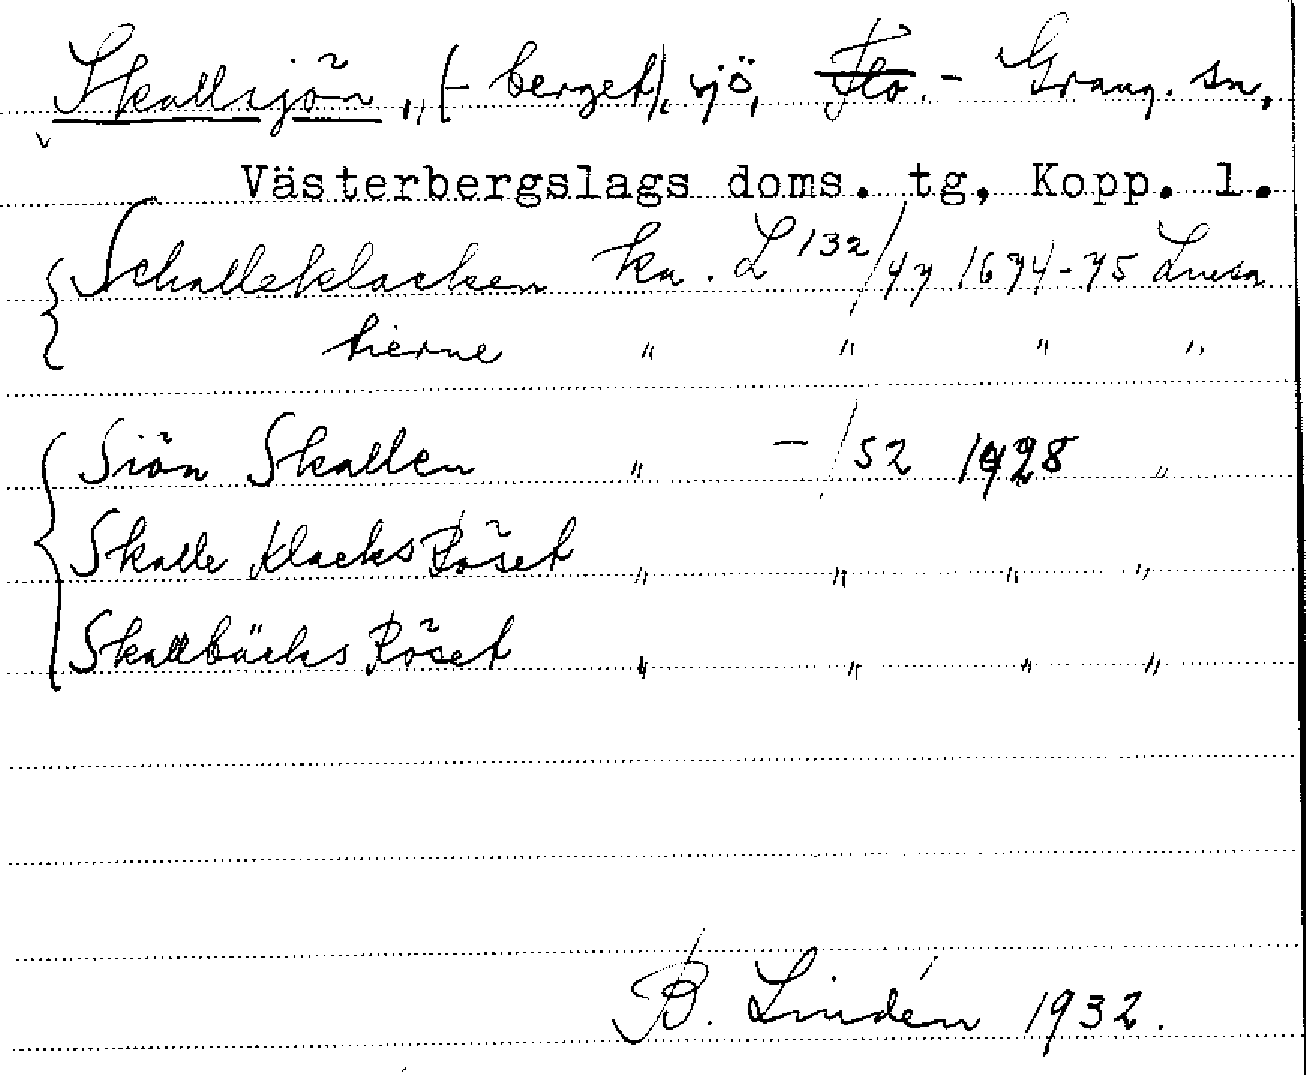 Skallsjön, (-berget), sjö, Flo. - Grang. sn,
Västerbergslags doms. tg, Kopp. l.
Schalleklacken ka. L 132/47 1674-75 Lmsa
tierne " " " "
Siön Skallen " - /52 1728 "
Skalle KlacksRöset " " " "
Skallbäcks Röset " " " "
B. Lindén 1932.